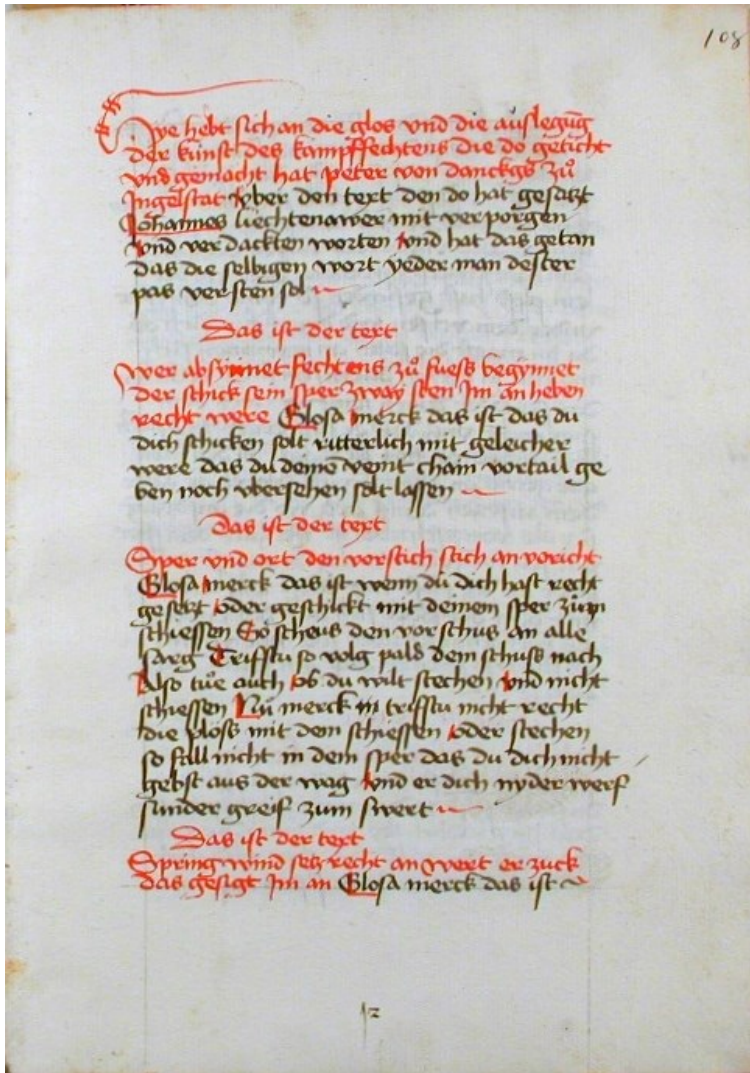 108
Hye hebt sich an die glos vnd die auslegūg
der kunst des kampffechtens die do geticht
vnd gemacht hat peter von danckgs zů
Ingelstat vber den text den do hat gesatzt
Johannes liechtenawer mit verporgen
vnd verdackten worten vnd hat das getan
das die selbigen wort yeder man dester
pas versten sol
Das ist der text
wer absynnet fechtens zů fuess begynnet
der schick sein sper zway sten Im anheben
recht were Glosa merck das ist das du
dich schicken solt ritterlich mit geleicher
were das du deinē veint chain vortail ge
ben noch vbersehen solt lassen
Das ist der text
Sper vnd ort den vorstich stich an voricht
Glosa merck das ist wenn du dich hast recht
gesetzt oder geschickt mit deinem sper zům
schiessen So scheus den vorschus an alle
sarg Trifftu so volg pald dem schuss nach
Also tůe auch ob du wilt stechen vnd nicht
schiessen Nů merck in trifftu nicht recht
die plöss mit dem schiessen oder stechen
so fall nicht in dem sper das du dich nicht
gebst aus der wag vnd er dich nyder werf
sunder greif zum swert
Das ist der text
Spring wind setz recht an wert er zuck
das gesigt Im an Glosa merck das ist